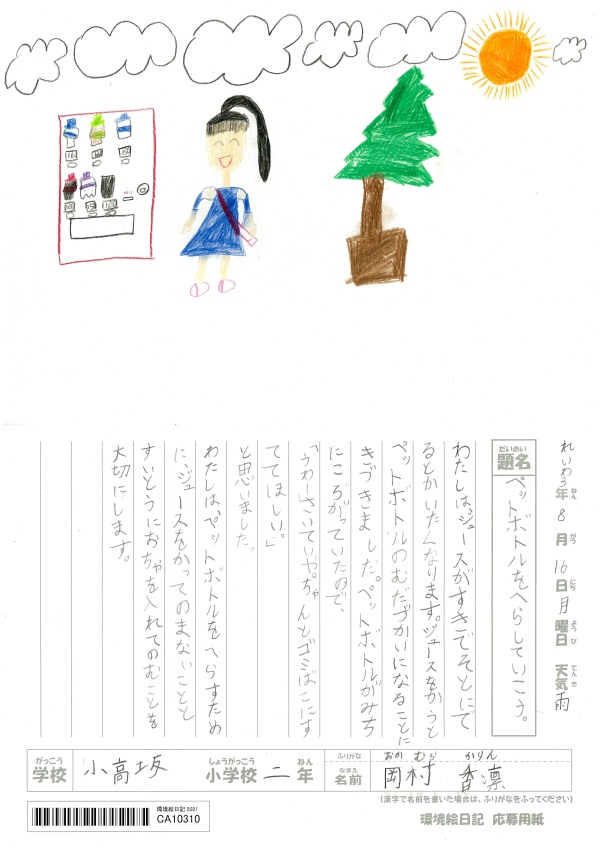 れいわ3年ねん8月がつ16日にち月曜日ようび 天気てんき雨
だいめい
題名
ペットボトルをへらしていこう。
わたしは、ジュースがすきでそとにで
るとかいたくなります。ジュースをかうと
ペットボトルのむだづかいになることに
きづきました。ペットボトルがみち
にころがっていたので、
「うわーさいていや。ちゃんとゴミばこにす
ててほしい。」
と思いました。
わたしは、ペットボトルをへらすため
に、ジュースをかってのまないことと
すいとうにおちゃを入れてのむことを
大切にします。
がっこう
学校
小高坂
しょうがっこう
小学校
二
ねん
年
ふりがな
なまえ
名前
おか むら かりん
岡村 香凛
(漢字で名前を書いた場合は、ふりがなをふってください)
環境絵日記 2021
CA10310
環境絵日記 応募用紙